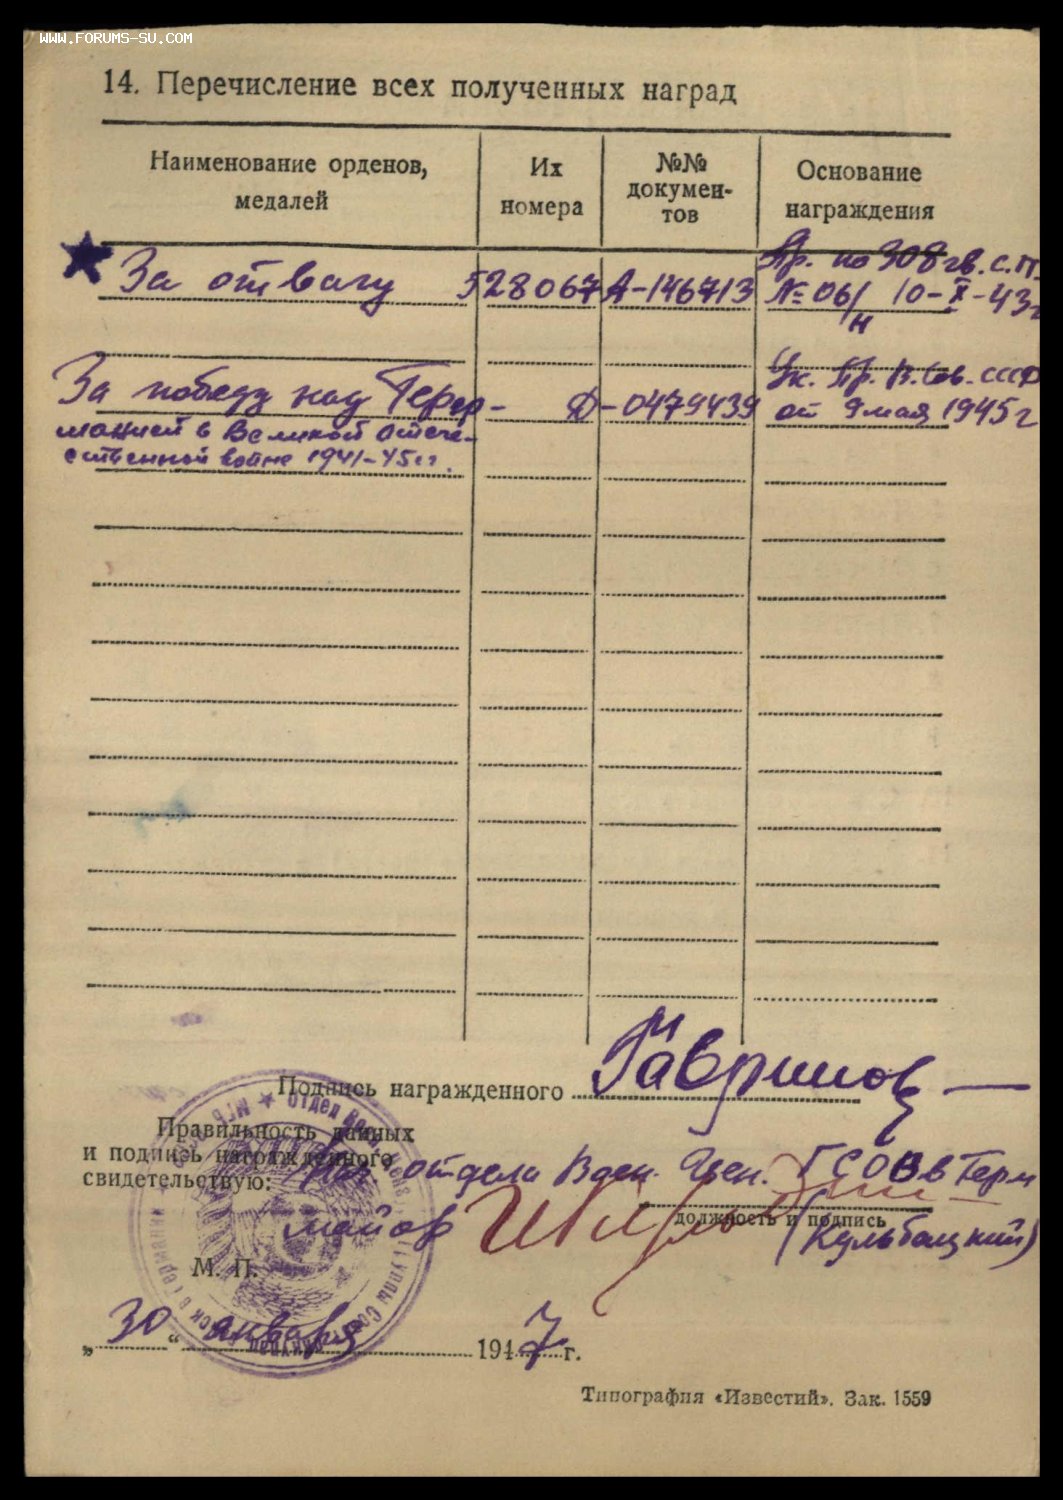 WWW.FORUMS-SU.COM
14. Перечисление всех полученных наград
Наименование орденов, медалей
Их номера
№№ докумен-тов
Основание награждения
За отвагу 528067 А-146713 Пр. по 308 гв. с.п.
№ 06/н 10-X-43г
За победу над Гер- Д-0479439 Ук. Пр. В. Сов. СССР
манией в Великой отече- от 9 мая 1945 г
ственной войне 1941-45 гг.
Подпись награжденного Гаврилов
Правильность данных
и подпись награжденного
свидетельствую:
отдела Воен. ГСОВ в Герм
должность и подпись
майор (Кульбацкий)
М. П.
„30“ января 1947 г.
Типография «Известий». Зак. 1559